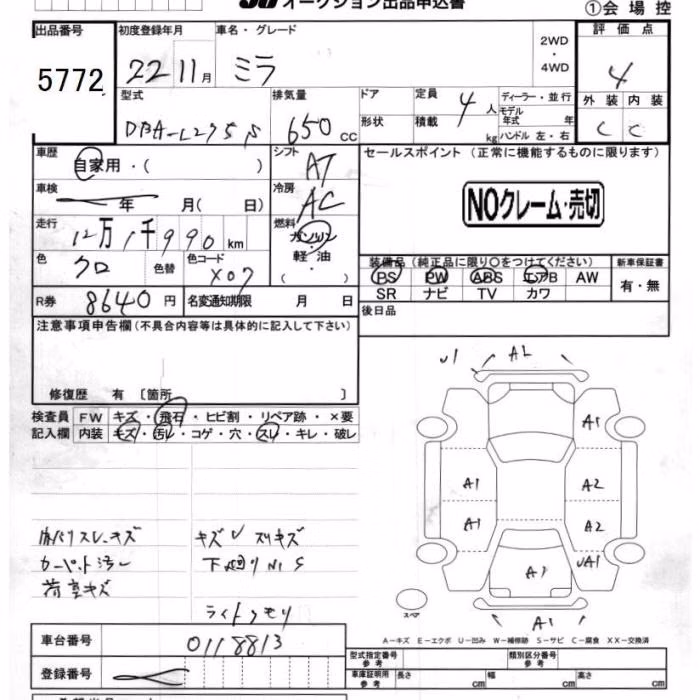 オークション出品申込書
①会場控
出品番号 初度登録年月 車名・グレード 評価点
5772 22 11月 ミラ 2WD・4WD 4
型式 排気量 ドア 定員 4人 ディーラー・並行 外装 内装
DBA-L275S 650cc 形状 積載 kg モデル年式 年 C C
ハンドル 左・右
車歴 自家用・( ) シフト AT セールスポイント(正常に機能するものに限ります)
車検 年 月( 日) 冷房 AC NOクレーム・売切
走行 12万1千990km 燃料 ガソリン・軽油・( )
色 クロ 色替 色コード X07 装備品(純正品に限り○をつけてください) 新車保証書
PS PW ABS エアB AW 有・無
SR ナビ TV カワ
R券 8640円 名変通知期限 月 日 後日品
注意事項申告欄(不具合内容等は具体的に記入して下さい)
修復歴 有 〔箇所 〕
検査員記入欄 FW キズ・飛石・ヒビ割・リペア跡・×要
内装 キズ・汚レ・コゲ・穴・スレ・キレ・破レ
U1 A2
A1
A1 A2
A1 A2
UA1
A1
スペア A1
内バリスレキズ キズU スリキズ
カーペット汚レ 下廻りサビS
荷室キズ
ライトクモリ
A-キズ E-エクボ U-凹み W-補修跡 S-サビ C-腐食 XX-交換済
車台番号 0118813
登録番号
型式指定番号 参考 類別区分番号 参考
車庫証明用 参考 長さ cm 幅 cm 高さ cm